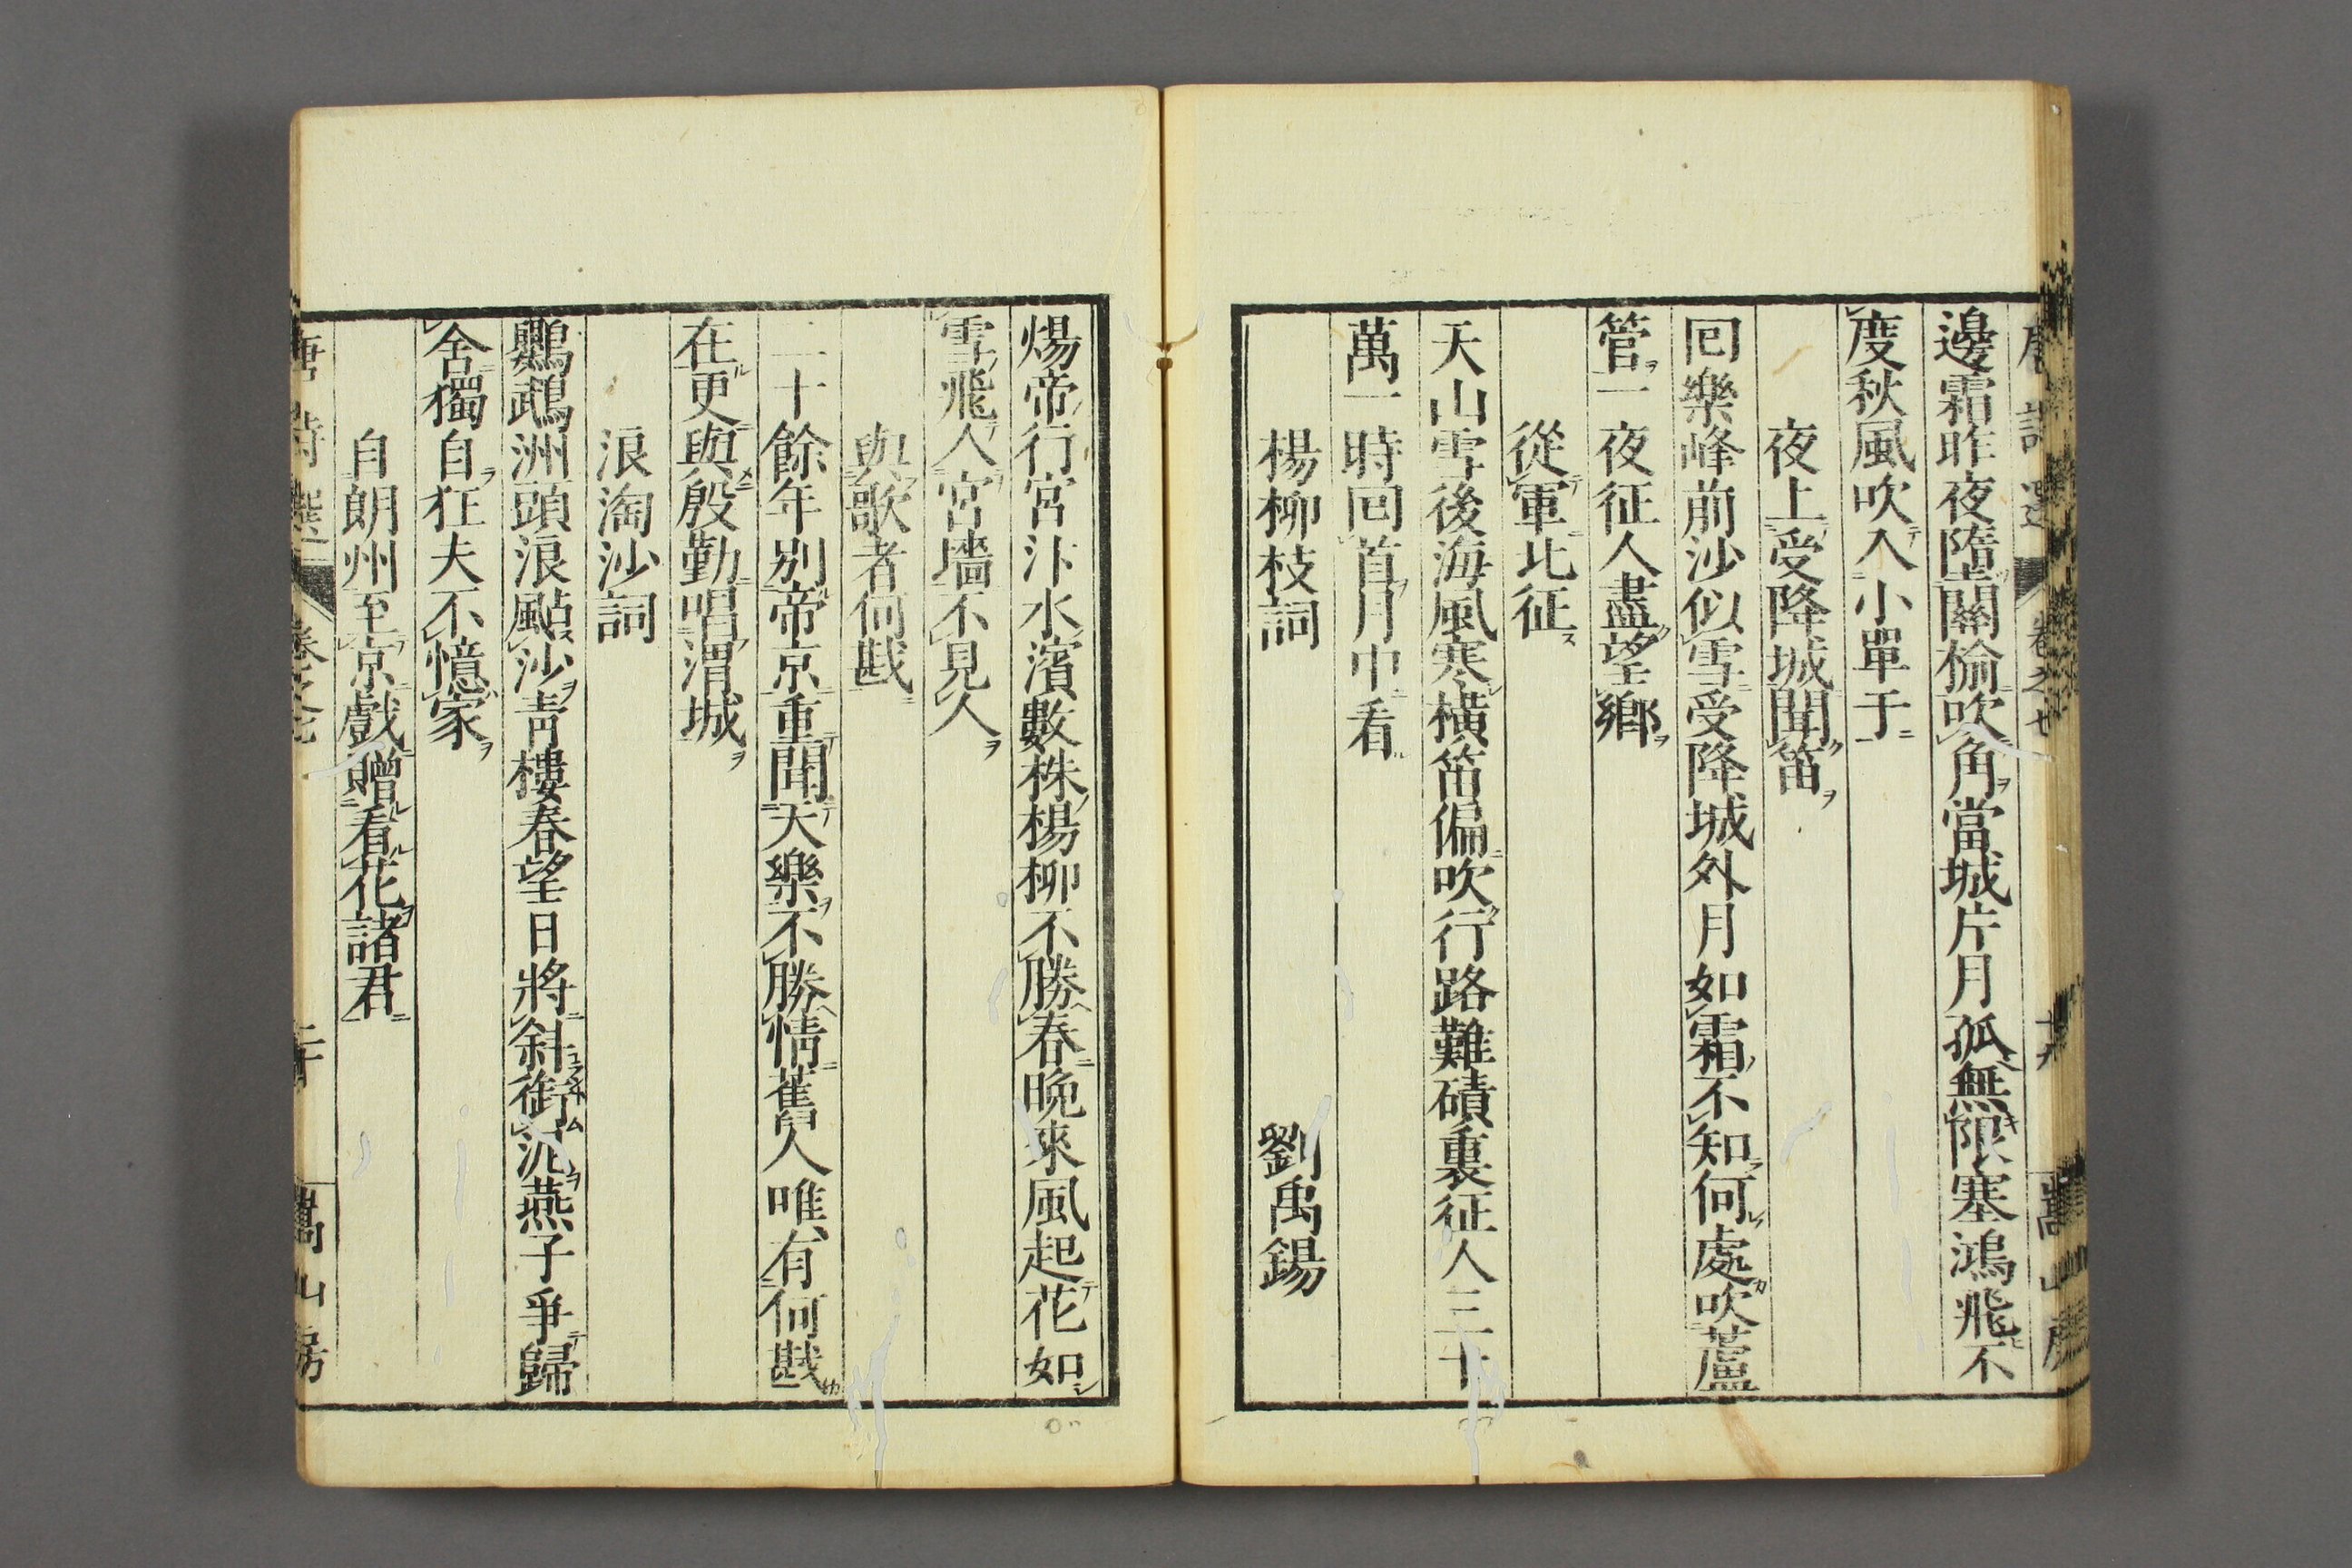 唐詩選 卷之七
邊霜昨夜墮關榆吹角當城片月孤無限塞鴻飛不
度秋風吹入小單于
夜上受降城聞笛
回樂峰前沙似雪受降城外月如霜不知何處吹蘆
管一夜征人盡望鄉
從軍北征
天山雪後海風寒橫笛偏吹行路難磧裏征人三十
萬一時回首月中看
楊柳枝詞 劉禹錫
煬帝行宮汴水濱數株楊柳不勝春晚來風起花如
雪飛入宮墻不見人
與歌者何戡
二十餘年別帝京重聞天樂不勝情舊人唯有何戡
在更與殷勤唱渭城
浪淘沙詞
鸚鵡洲頭浪颭沙青樓春望日將斜御泥燕子爭歸
舍獨自狂夫不憶家
自朗州至京戲贈看花諸君
唐詩選 卷之七 二十 嵩山房